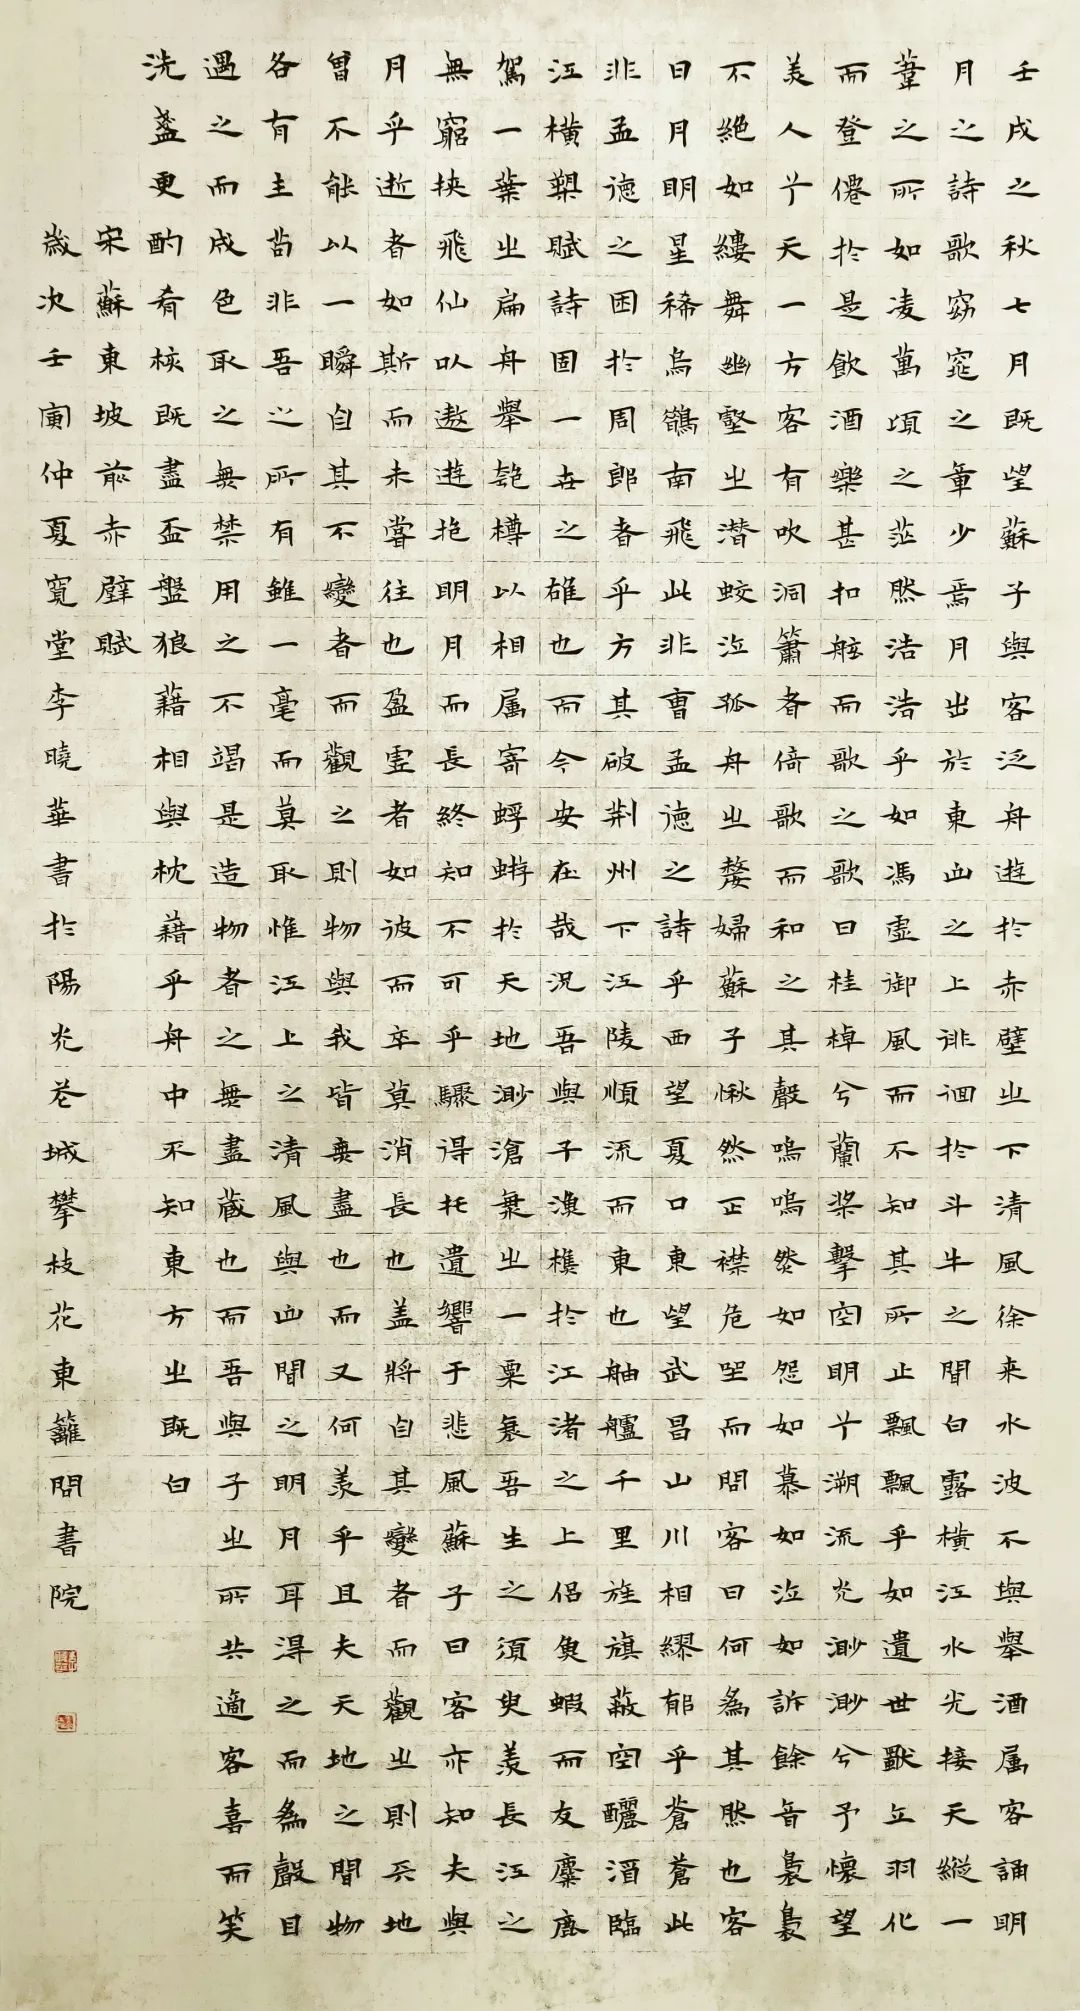 壬戌之秋七月既望蘇子與客泛舟遊於赤壁之下清風徐来水波不與舉酒属客誦明
月之詩歌窈窕之章少焉月出於東山之上徘徊於斗牛之間白露橫江水光接天縱一
葦之所如凌萬頃之茫然浩浩乎如馮虛御風而不知其所止飄飄乎如遺世獸立羽化
而登僊於是飲酒樂甚扣舷而歌之歌曰桂棹兮蘭槳擊空明兮溯流光渺渺兮予懷望
美人兮天一方客有吹洞簫者倚歌而和之其聲嗚嗚然如怨如慕如泣如訴餘音裊裊
不絕如縷舞幽壑之潛蛟泣孤舟之嫠婦蘇子愀然正襟危坐而問客曰何為其然也客
日月明星稀烏鵲南飛此非曹孟德之詩乎西望夏口東望武昌山川相繆郁乎蒼蒼此
非孟德之困於周郎者乎方其破荊州下江陵順流而東也舳艫千里旌旗蔽空釃酒臨
江橫槊賦詩固一世之雄也而今安在哉況吾與子漁樵於江渚之上侶魚蝦而友麋鹿
駕一葉之扁舟舉匏樽以相属寄蜉蝣於天地渺滄海之一粟哀吾生之須臾羨長江之
無窮挾飛仙以遨遊抱明月而長終知不可乎驟得托遺響于悲風蘇子曰客亦知夫與
月乎逝者如斯而未嘗往也盈虛者如彼而卒莫消長也盖將自其變者而觀之則天地
曾不能以一瞬自其不變者而觀之則物與我皆無盡也而又何羨乎且夫天地之間物
各有主苟非吾之所有雖一毫而莫取惟江上之清風與山間之明月耳得之而為聲目
遇之而成色取之無禁用之不竭是造物者之無盡藏也而吾與子之所共適客喜而笑
洗盞更酌肴核既盡盃盤狼藉相與枕藉乎舟中不知東方之既白
宋蘇東坡前赤壁賦
歲次壬寅仲夏寬堂李曉華書於陽光花城攀枝花東籬問書院